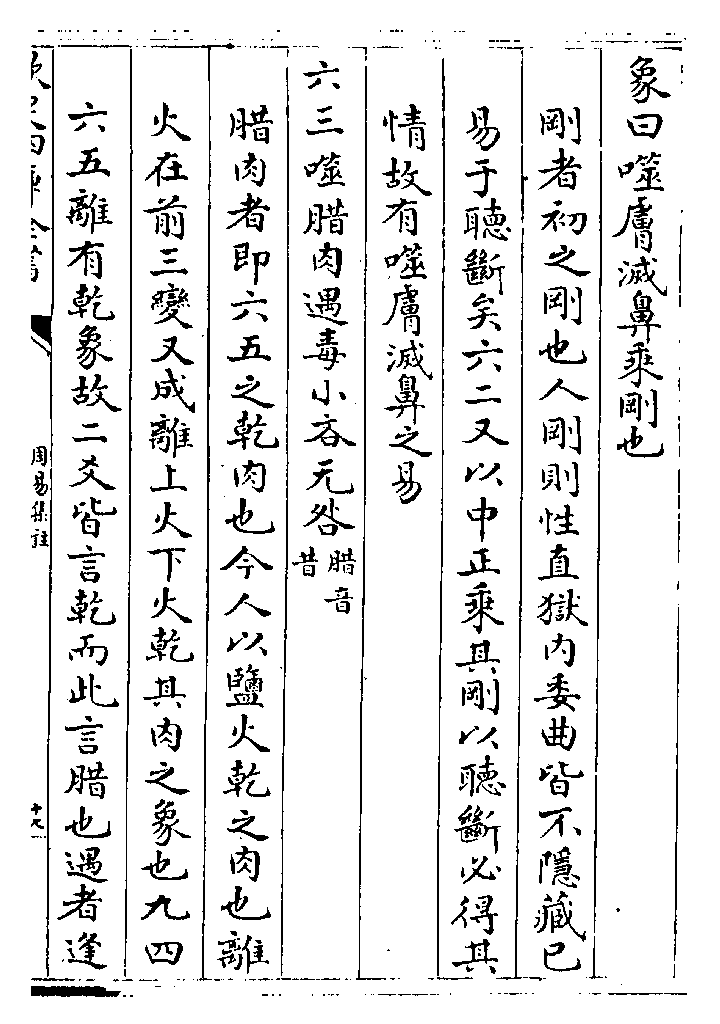 象曰噬膚滅鼻乘剛也
剛者初之剛也人剛則性直獄内委曲皆不隱藏已
易于聽斷矣六二又以中正乘其剛以聽斷必得其
情故有噬膚滅鼻之易
六三噬腊肉遇毒小吝无咎腊音昔
腊肉者即六五之乾肉也今人以鹽火乾之肉也離
火在前三變又成離上火下火乾其肉之象也九四
六五離有乾象故二爻皆言乾而此言腊也遇者逢
欽定四庫全書
周易集註
十七